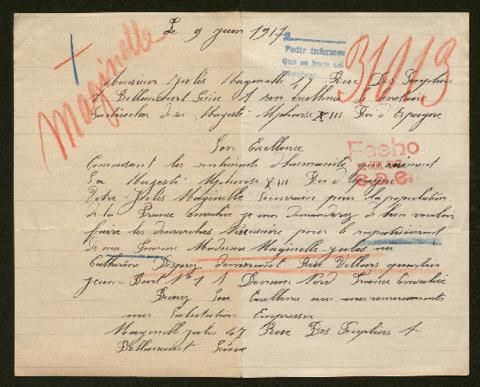 Le 9 Juin 1917
Maginelle
31013
Pedir informes
Que se hace así
Monsieur Jules Maginelle 47 Rue Des Peupliers
à Billancourt Seine à son excellence le
de sa Majesté Alphonse XIII Roi d'Espagne
Son Excellence
Connaissant les sentiments d'humanité
Sa Majesté Alphonse XIII Roi d'Espagne
Jules Maginelle pour la population
de la France envahie je vous demanderez de bien vouloir
faire les démarches nécessaire pour le rapatriement
de ma femme Madame Maginelle jules née
Catherine demeurant Rue Villars quartier
Jean Bart No 1 à Denain Nord France Envahie
Son Excellence avec mes remerciements
mes Salutation Empressée
Maginelle jules 47 Rue Des Peupliers à
Billancourt Seine
Fecho